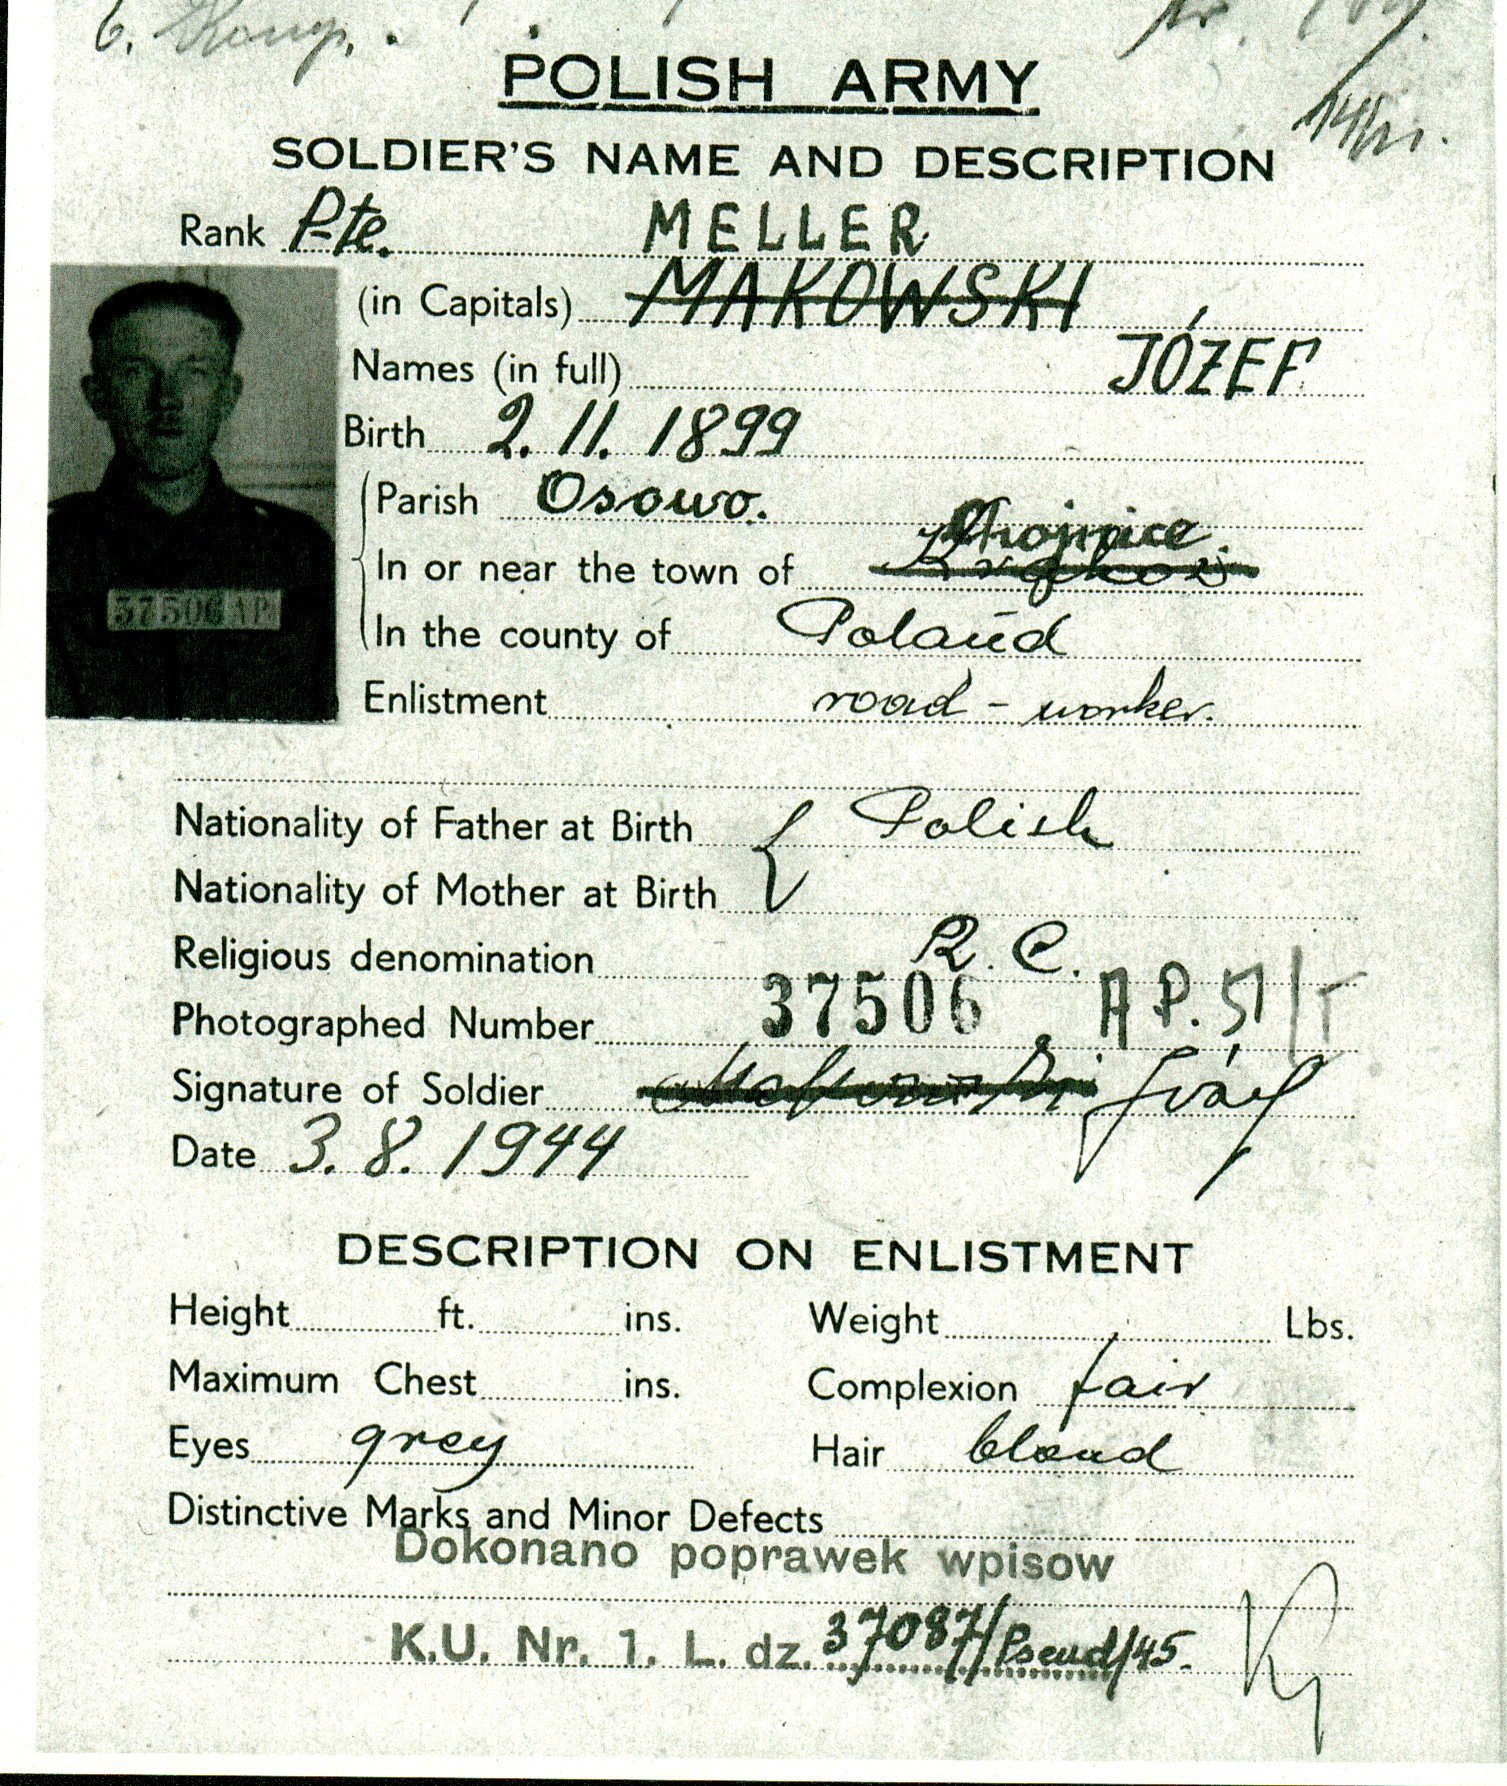 POLISH ARMY
SOLDIER'S NAME AND DESCRIPTION
Rank Pte. MELLER
(in Capitals) MAKOWSKI
Names (in full) JÓZEF
Birth 2. 11. 1899
Parish Osowo.
Chojnice.
In or near the town of
In the county of Poland
Enlistment road - worker.
37506 AP
Nationality of Father at Birth Polish
Nationality of Mother at Birth
Religious denomination R. C.
Photographed Number 37506 AP.
Signature of Soldier Józef
Date 3. 8. 1944
DESCRIPTION ON ENLISTMENT
Height ft. ins. Weight Lbs.
Maximum Chest ins. Complexion fair
Eyes grey Hair blond
Distinctive Marks and Minor Defects
Dokonano poprawek wpisow
K.U. Nr. 1. L. dz. 37087/Pseud/45.